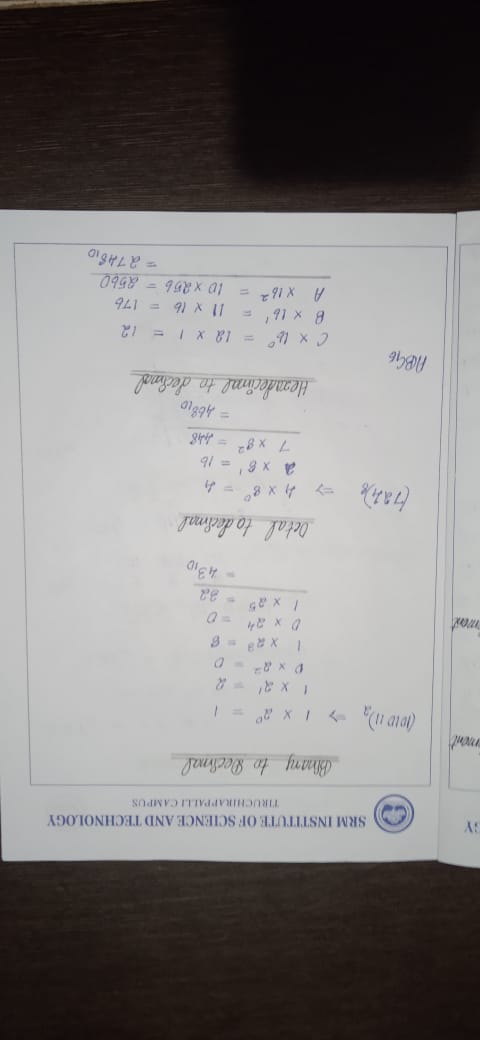 SRM INSTITUTE OF SCIENCE AND TECHNOLOGY
TIRUCHIRAPPALLI CAMPUS
Binary to Decimal
(101011)₂ ⇒ 1 × 2⁰ = 1
1 × 2¹ = 2
0 × 2² = 0
1 × 2³ = 8
0 × 2⁴ = 0
1 × 2⁵ = 32
= 43₁₀
Octal to decimal
(724)₈ ⇒ 4 × 8⁰ = 4
2 × 8¹ = 16
7 × 8² = 448
= 468₁₀
Hexadecimal to decimal
ABC₁₆
C × 16⁰ = 12 × 1 = 12
B × 16¹ = 11 × 16 = 176
A × 16² = 10 × 256 = 2560
= 2748₁₀
GY